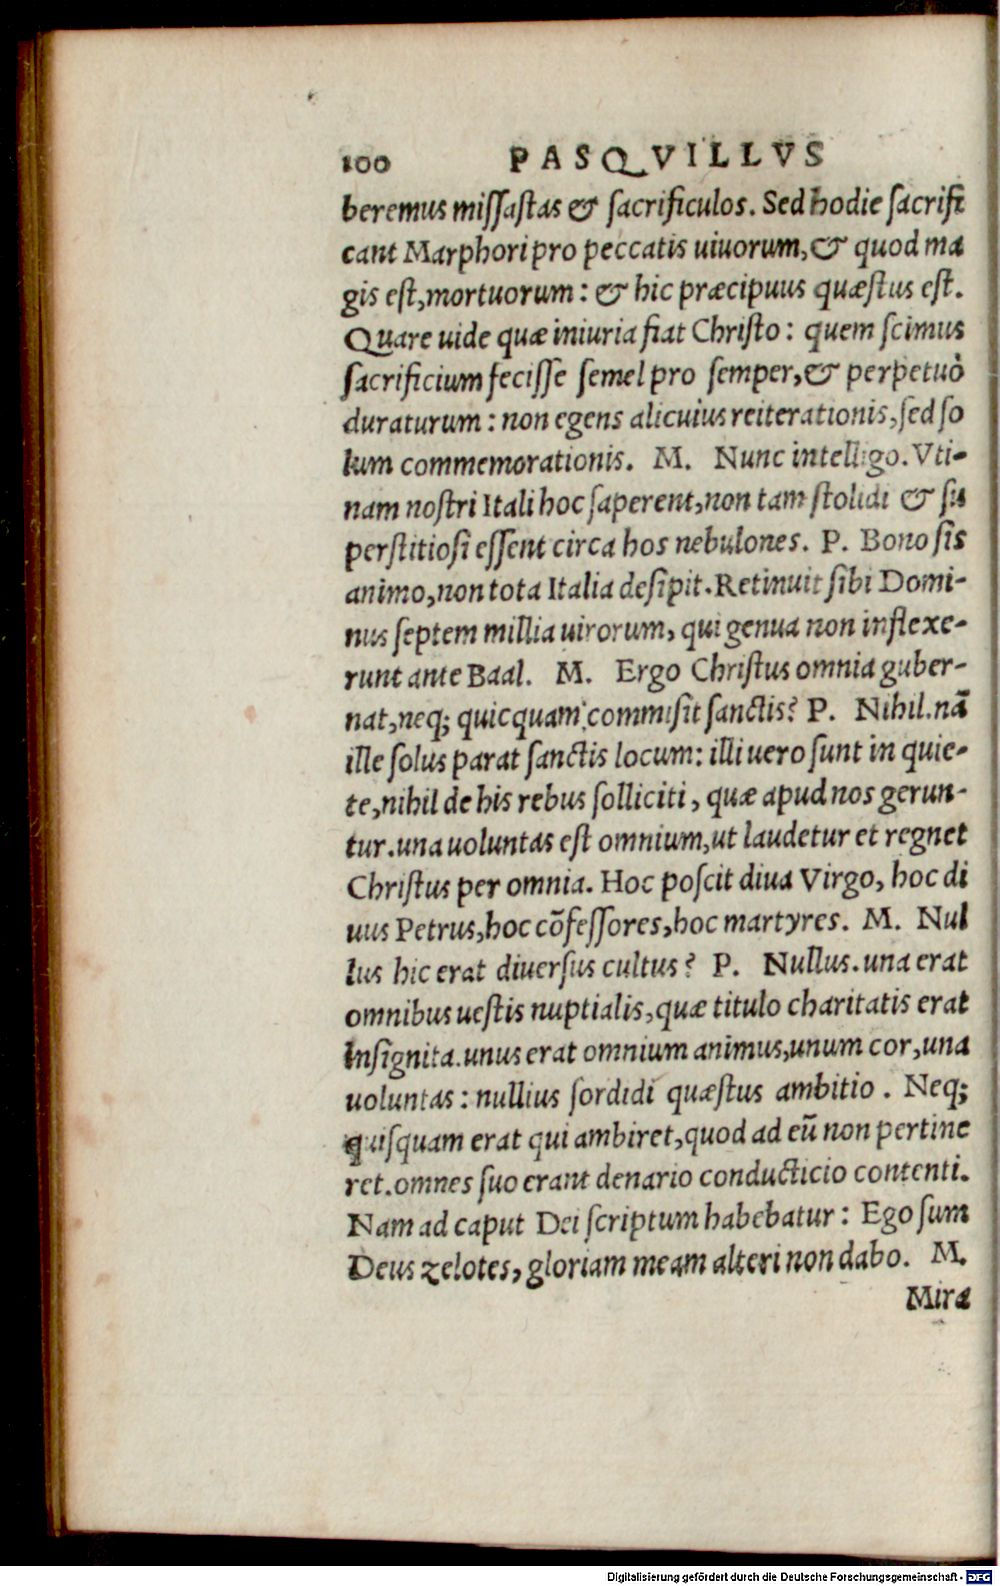 100 PASQVILLVS
beremus missastas & sacrificulos. Sed hodie sacrifi
cant Marphori pro peccatis uiuorum, & quod ma
gis est, mortuorum: & hic præcipuus quæstus est.
Quare uide quæ iniuria fiat Christo: quem scimus
sacrificium fecisse semel pro semper, & perpetuò
duraturum: non egens alicuius reiterationis, sed so
lum commemorationis. M. Nunc intelligo. Vti-
nam nostri Itali hoc saperent, non tam stolidi & su
perstitiosi essent circa hos nebulones. P. Bono sis
animo, non tota Italia desipit. Retinuit sibi Domi-
nus septem millia uirorum, qui genua non inflexe-
runt ante Baal. M. Ergo Christus omnia guber-
nat, neq; quicquam commisit sanctis? P. Nihil. nã
ille solus parat sanctis locum: illi uero sunt in quie-
te, nihil de his rebus solliciti, quæ apud nos gerun-
tur. una uoluntas est omnium, ut laudetur et regnet
Christus per omnia. Hoc poscit diua Virgo, hoc di
uus Petrus, hoc cõfessores, hoc martyres. M. Nul
lus hic erat diuersus cultus? P. Nullus. una erat
omnibus uestis nuptialis, quæ titulo charitatis erat
insignita. unus erat omnium animus, unum cor, una
uoluntas: nullius sordidi quæstus ambitio. Neq;
quisquam erat qui ambiret, quod ad eũ non pertine
ret. omnes suo erant denario conducticio contenti.
Nam ad caput Dei scriptum habebatur: Ego sum
Deus zelotes, gloriam meam alteri non dabo. M.
Miræ
Digitalisierung gefördert durch die Deutsche Forschungsgemeinschaft - DFG